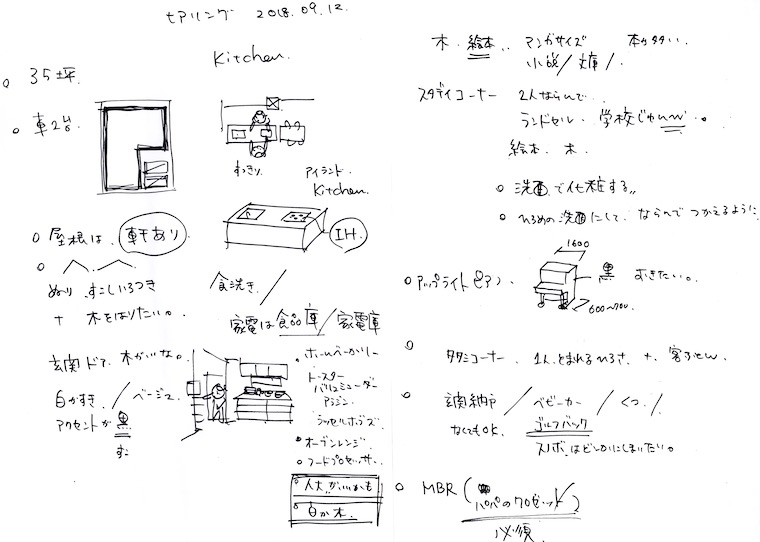 ヒアリング 2018.09.12.
Kitchen.
35坪.
車2台.
すっきり.
アイランド
Kitchen.
屋根は、軒あり
IH.
ぬり すこしいろつき
+ 木をはりたい。
食洗き /
家電は食品庫/家電庫
玄関ドア. 木がいいな。
白がすき / ベージュ
アクセントが黒
・ホームベーカリー
・トースター
バルミューダー
・オーブンレンジ.
・フードプロセッサー.
・人大がいいかも
・白か木.
本. 絵本.. マンガサイズ
小説/文庫/.
スタディコーナー 2人ならんで..
ランドセル. 学校
絵本. 本.
洗面で化粧する,,
ひろめの洗面にして. ならんでつかえるように
1600
アップライトピアノ. 黒
600~700
タタミコーナー. 1人とまれるひろさ. +. 客ぶとん.
玄関納戸 / ベビーカー / くつ. /.
なくてもOK. ゴルフバック
スノボはどこかにしまいたい。
MBR (パパのクロゼット)
必須.